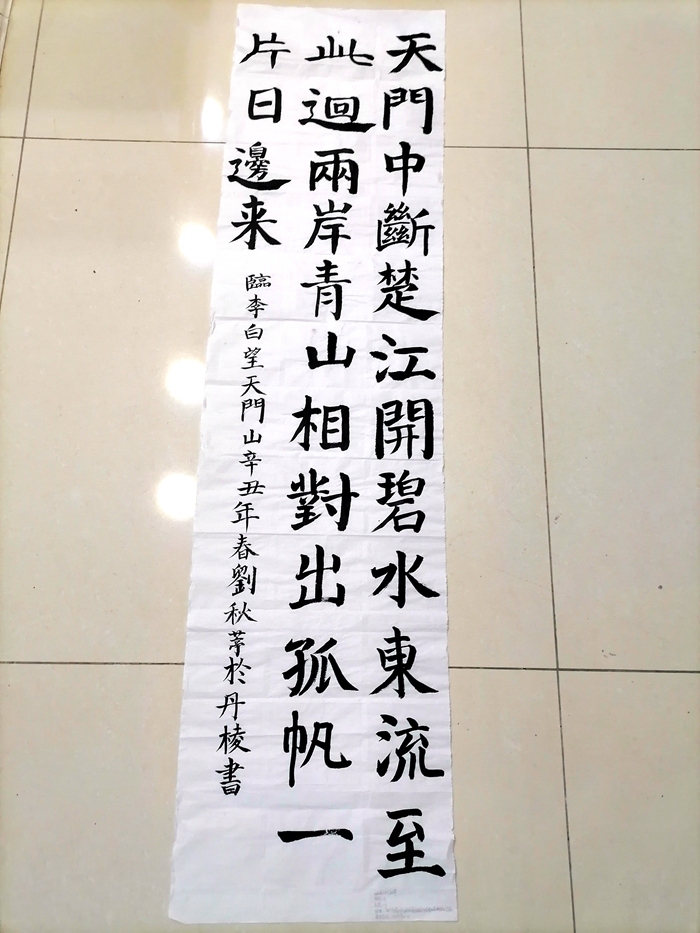 天門中斷楚江開碧水東流至
此迴兩岸青山相對出孤帆一
片日邊来
臨李白望天門山辛丑年春劉秋芽於丹棱書